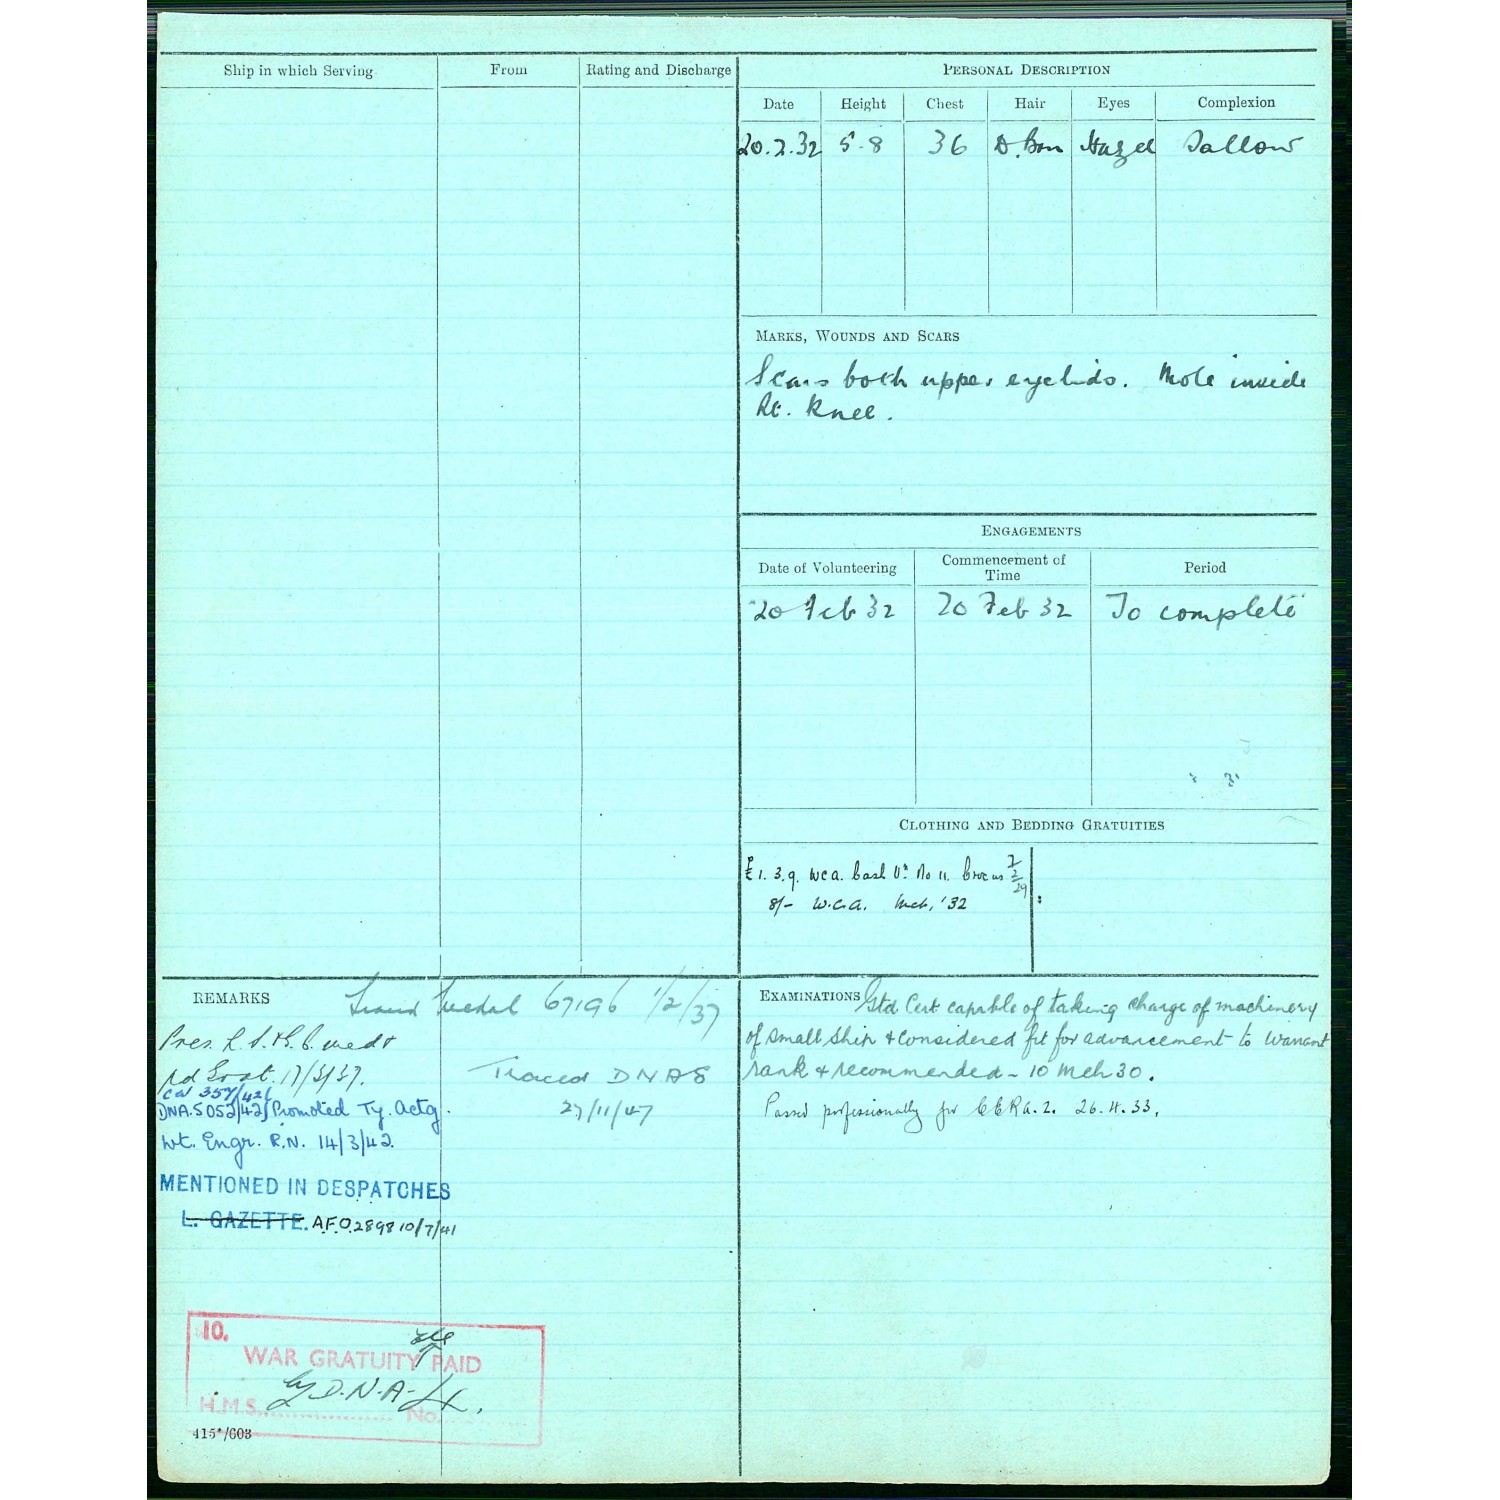 Ship in which Serving From Rating and Discharge
PERSONAL DESCRIPTION
Date Height Chest Hair Eyes Complexion
20.2.32 5-8 36 D. Brn Hazel Sallow
MARKS, WOUNDS AND SCARS
Scars both upper eyelids. Mole inside
Rt. Knee.
ENGAGEMENTS
Date of Volunteering Commencement of Time Period
20 Feb 32 20 Feb 32 To complete
CLOTHING AND BEDDING GRATUITIES
£1. 3. 9. WCA. Cash Vr. No 11. Crocus 7/2/29
8/- W.C.A. Mch, '32
REMARKS
Traced Medal 67196 1/2/37
Pres. L. S. & G. C. medl
pd Grat. 17/3/37.
Traced DNAS
27/11/47
CW 357/42
DNA.5052/42 Promoted Ty. Actg.
Wt. Engr. R.N. 14/3/42.
MENTIONED IN DESPATCHES
L. GAZETTE. A.F.O. 2898 10/7/41
10.
WAR GRATUITY PAID
by D.N.A.
H.M.S. No.
415*/603
EXAMINATIONS Gtd Cert capable of taking charge of machinery
of small ship & considered fit for advancement to Warrant
rank & recommended - 10 Mch 30.
Passed professionally for CERA. 2. 26.4.33.